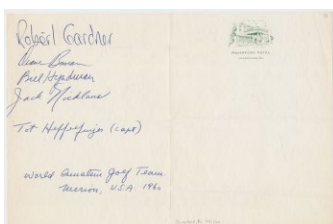 Robert Gardner
Deane Beman
Bill Hyndman
Jack Nicklaus
Tot Heffelfinger (capt)
World Amateur Golf Team
Merion, U.S.A. 1960